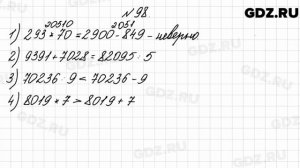 GDZ.RU
№98.
20510 2051
1) 293 * 70 = 2900 - 849 - неверно
2) 9391 + 7028 = 82095 : 5
3) 70236 : 9 < 70236 - 9
4) 8019 * 7 > 8019 + 7
GDZ.RU